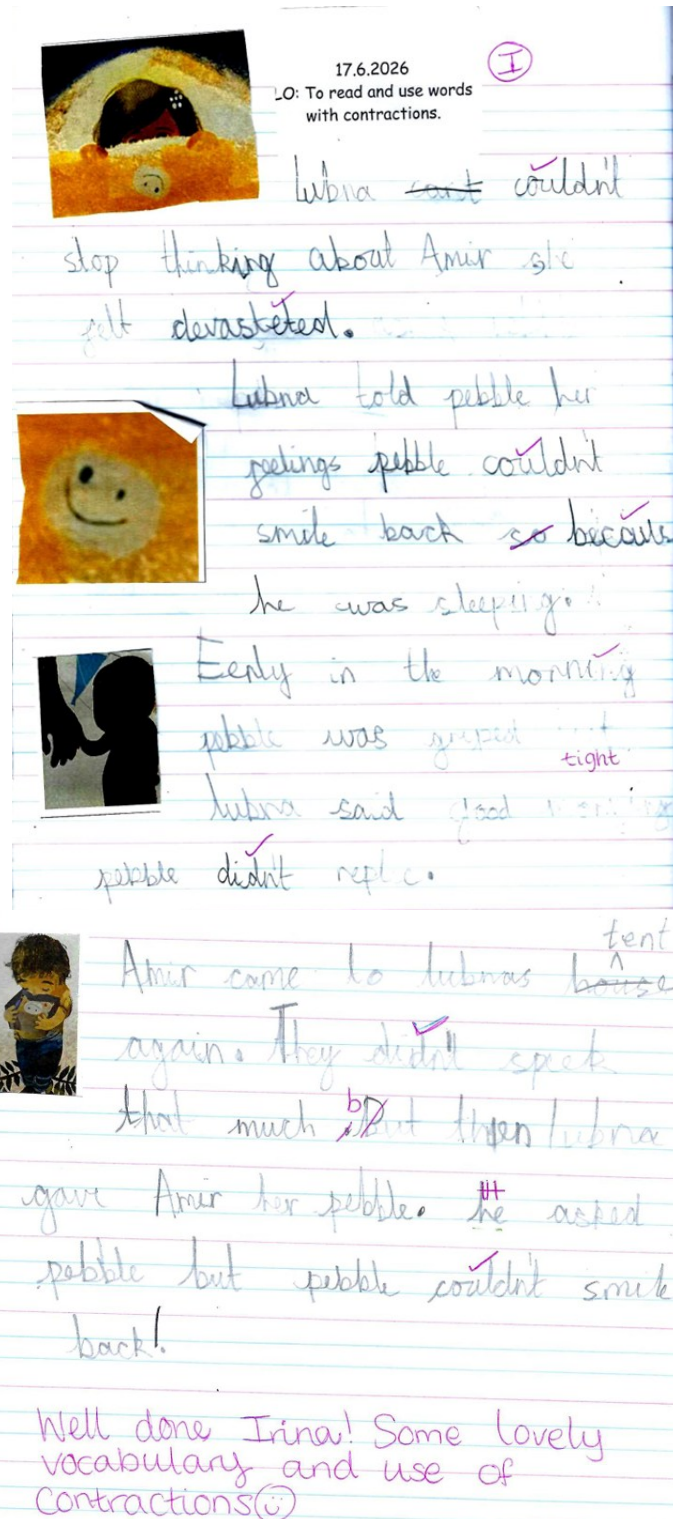 17.6.2026
I
LO: To read and use words
with contractions.
Lubna can't couldn't
stop thinking about Amir she
felt devasteted.
Lubna told pebble her
feelings pebble couldn't
smile back so becaus
he was sleeping.
Eerly in the morning
pebble was
tight
lubna said good morning
pebble didn't replie.
tent
Amir came to lubnas house
again. They didn't speek
that much. But then lubna
b
gave Amir her pebble. he asked
H
pebble but pebble couldn't smile
back!
Well done Irina! Some lovely
vocabulary and use of
contractions